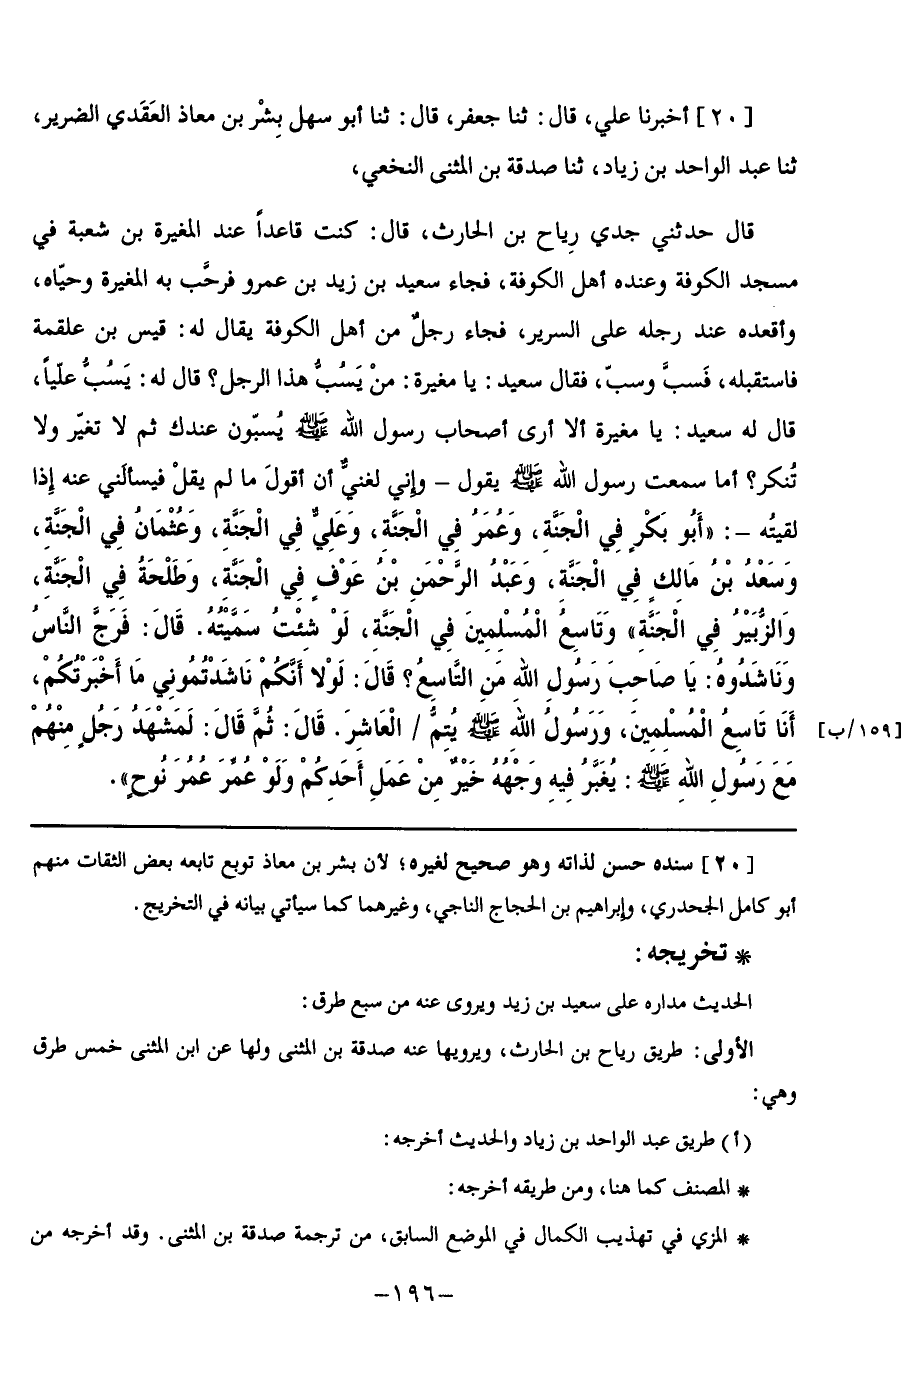 [٢٠] أخبرنا علي، قال: ثنا جعفر، قال: ثنا أبو سهل بِشْر بن معاذ العَقَدي الضرير،
ثنا عبد الواحد بن زياد، ثنا صدقة بن المثنى النخعي،
قال حدثني جدي رِياح بن الحارث، قال: كنت قاعداً عند المغيرة بن شعبة في
مسجد الكوفة وعنده أهل الكوفة، فجاء سعيد بن زيد بن عمرو فرحَّب به المغيرة وحيّاه،
وأقعده عند رجله على السرير، فجاء رجلٌ من أهل الكوفة يقال له: قيس بن علقمة
فاستقبله، فَسبَّ وسبّ، فقال سعيد: يا مغيرة: منْ يَسُبُّ هذا الرجل؟ قال له: يَسُبُّ عليّاً،
قال له سعيد: يا مغيرة ألا أرى أصحاب رسول الله ﷺ يُسبّون عندك ثم لا تغيّر ولا
تُنكر؟ أما سمعت رسول الله ﷺ يقول - وإني لغنيٌّ أن أقولَ ما لم يقلْ فيسألَني عنه إذا
لقيتُه -: «أَبُو بَكْرٍ فِي الْجَنَّةِ، وَعُمَرُ فِي الْجَنَّةِ، وَعَلِيٌّ فِي الْجَنَّةِ، وَعُثْمَانُ فِي الْجَنَّةِ،
وَسَعْدُ بْنُ مَالِكٍ فِي الْجَنَّةِ، وَعَبْدُ الرَّحْمَنِ بْنُ عَوْفٍ فِي الْجَنَّةِ، وَطَلْحَةُ فِي الْجَنَّةِ،
وَالزُّبَيْرُ فِي الْجَنَّةِ» وَتَاسِعُ الْمُسْلِمِينَ فِي الْجَنَّةِ، لَوْ شِئْتُ سَمَّيْتُهُ. قَالَ: فَرَجَّ النَّاسُ
وَنَاشَدُوهُ: يَا صَاحِبَ رَسُولِ اللهِ مَنِ التَّاسِعُ؟ قَالَ: لَوْلا أَنَّكُمْ نَاشَدْتُمُونِي مَا أَخْبَرْتُكُمْ،
أَنَا تَاسِعُ الْمُسْلِمِينَ، وَرَسُولُ اللهِ ﷺ يُتِمُّ / الْعَاشِرَ. قَالَ: ثُمَّ قَالَ: لَمَشْهَدُ رَجُلٍ مِنْهُمْ [١٥٩/ب]
مَعَ رَسُولِ اللهِ ﷺ: يُغَبَّرُ فِيهِ وَجْهُهُ خَيْرٌ مِنْ عَمَلِ أَحَدِكُمْ وَلَوْ عُمِّرَ عُمُرَ نُوحٍ».
[٢٠] سنده حسن لذاته وهو صحيح لغيره؛ لان بشر بن معاذ توبع تابعه بعض الثقات منهم
أبو كامل الجحدري، وإبراهيم بن الحجاج الناجي، وغيرهما كما سيأتي بيانه في التخريج.
* تخريجه:
الحديث مداره على سعيد بن زيد ويروى عنه من سبع طرق:
الأولى: طريق رياح بن الحارث، ويرويها عنه صدقة بن المثنى ولها عن ابن المثنى خمس طرق
وهي:
(أ) طريق عبد الواحد بن زياد والحديث أخرجه:
* المصنف كما هنا، ومن طريقه أخرجه:
* المزي في تهذيب الكمال في الموضع السابق، من ترجمة صدقة بن المثنى. وقد أخرجه من
-١٩٦-